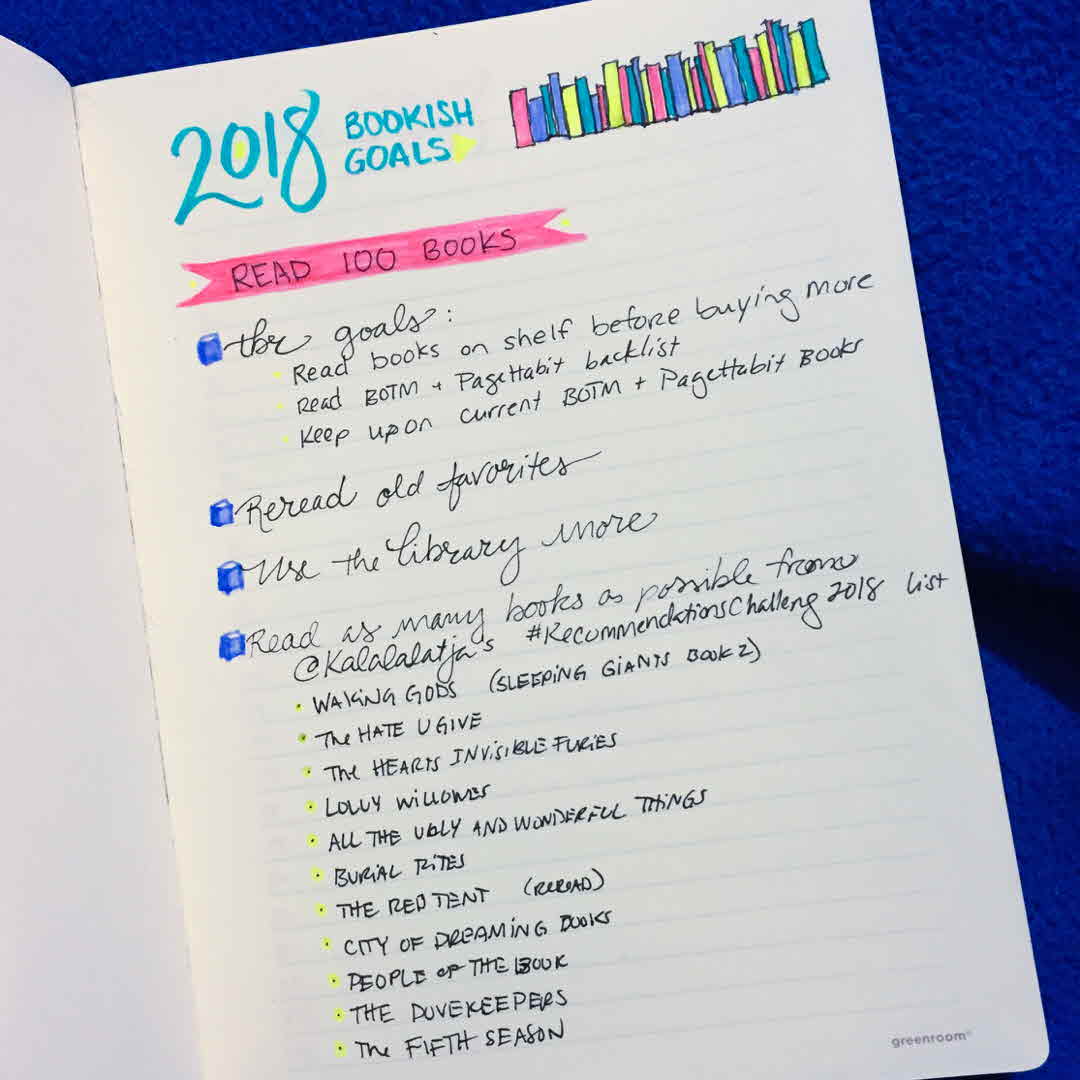 2018 BOOKISH
GOALS
READ 100 BOOKS
the goals:
Read books on shelf before buying more
Read BOTM + PageHabit backlist
Keep up on current BOTM + PageHabit Books
Reread old favorites
Use the library more
Read as many books as possible from
@Kalalalatja's #RecommendationsChalleng2018 list
WAKING GODS (SLEEPING GIANTS BOOK 2)
The HATE U GIVE
The HEARTS INVISIBLE FURIES
LOLLY WILLOWES
ALL THE UGLY AND WONDERFUL THINGS
BURIAL RITES
THE RED TENT (REREAD)
CITY OF DREAMING BOOKS
PEOPLE OF THE BOOK
THE DOVEKEEPERS
The FIFTH SEASON
greenroom®